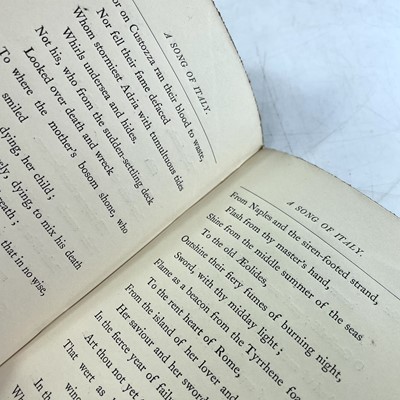 A SONG OF ITALY.
or on Custozza ran their blood to waste,
Nor fell their fame defaced
Whom stormiest Adria with tumultuous tides
Whirls undersea and hides.
Not his, who from the sudden-settling deck
Looked over death and wreck
To where the mother's bosom shone, who
smiled
dying, her child;
ely, dying, to mix his death
eath;
that in no wise,
A SONG OF ITALY.
From Naples and the siren-footed strand,
Flash from thy master's hand,
Shine from the middle summer of the seas
To the old Æolides,
Outshine their fiery fumes of burning night,
Sword, with thy midday light;
Flame as a beacon from the Tyrrhene foa
To the rent heart of Rome,
From the island of her lover and
Her saviour and her sword
In the fierce year of failu
Art thou not yet
That were as
wing
In the
W